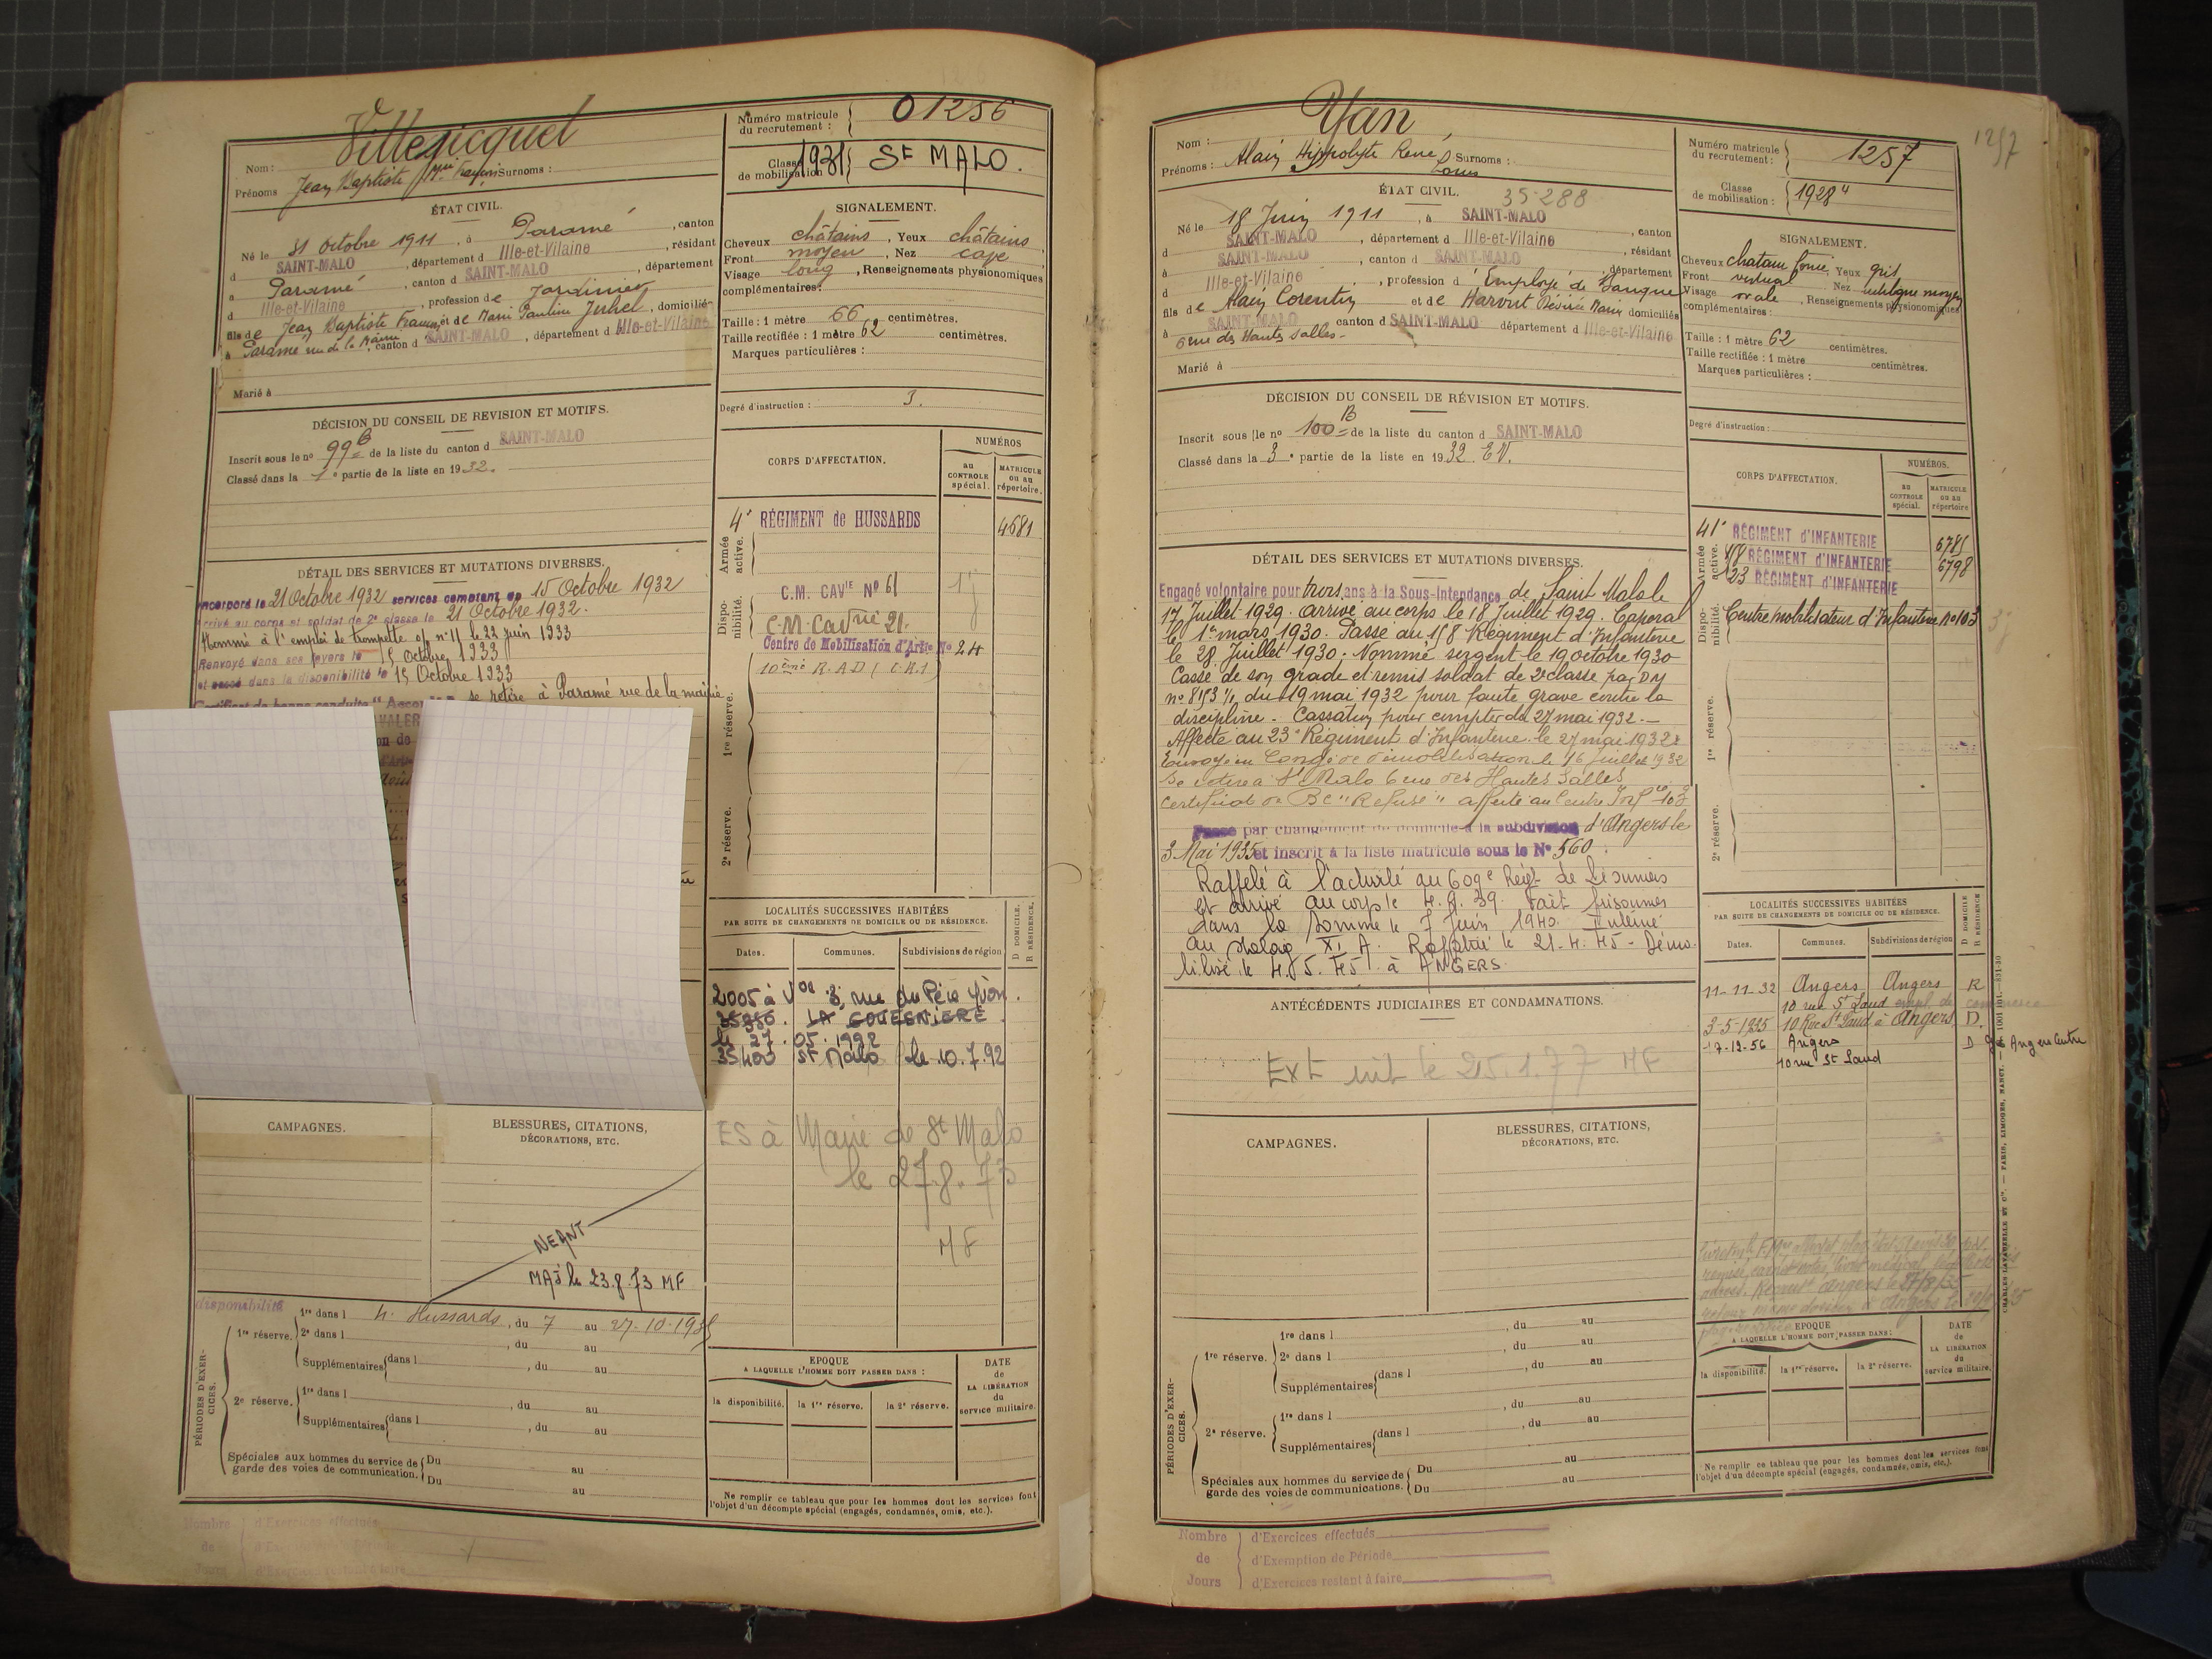 Villejicquel
Nom :
Prénoms Jean Baptiste Surnoms :
Numéro matricule du recrutement : 01256
Classe de mobilisation 1931 St MALO.
ÉTAT CIVIL.
Né le 31 Octobre 1911, à Paramé, canton
d SAINT-MALO, département d Ille-et-Vilaine, résidant
à Paramé, canton d SAINT-MALO, département
d Ille-et-Vilaine, profession de Jardinier
fils de Jean Baptiste François et de Marie Pauline Juhel, domiciliés
à Paramé rue de la Mairie, canton d SAINT-MALO, département d Ille-et-Vilaine
Marié à
SIGNALEMENT.
Cheveux châtains, Yeux châtains
Front moyen, Nez cave
Visage long, Renseignements physionomiques
complémentaires :
Taille : 1 mètre 66 centimètres.
Taille rectifiée : 1 mètre 62 centimètres.
Marques particulières :
Degré d'instruction : 3.
DÉCISION DU CONSEIL DE REVISION ET MOTIFS.
Inscrit sous le no 99 B de la liste du canton d SAINT-MALO
Classé dans la 1e partie de la liste en 1932.
DÉTAIL DES SERVICES ET MUTATIONS DIVERSES.
Incorporé le 21 Octobre 1932 services comptant du 15 Octobre 1932
Arrivé au corps et soldat de 2e classe le 21 Octobre 1932.
Nommé à l'emploi de trompette o/ n° 11 le 22 juin 1933
Renvoyé dans ses foyers le 15 Octobre 1933
et passé dans la disponibilité le 15 Octobre 1933
Certificat de bonne conduite se retire à Paramé rue de la mairie
CORPS D'AFFECTATION.
NUMÉROS
au CONTROLE spécial.
MATRICULE ou au répertoire.
Armée active.
4e RÉGIMENT de HUSSARDS 4681
Disponibilité.
C.M. CAVie No 61
C.M. Cavrie 21.
Centre de Mobilisation d'Artie No 24
10ème R.A.D
1re réserve.
2e réserve.
LOCALITÉS SUCCESSIVES HABITÉES
PAR SUITE DE CHANGEMENTS DE DOMICILE OU DE RÉSIDENCE.
D DOMICILE. R RÉSIDENCE.
Dates. Communes. Subdivisions de région
3, rue du Père Yvon.
LA GOUESNIERE
le 27.05.1992
35400 St Malo le 10.7.92
ES à Mairie de St Malo
le 27.8.73
MF
CAMPAGNES.
BLESSURES, CITATIONS,
DÉCORATIONS, ETC.
NEANT
MAJ le 23.8.73 MF
PÉRIODES D'EXERCICES.
disponibilité
1re réserve. 1re dans l 4e Hussards, du 7 au 27-10-1935
2e dans l , du au
Supplémentaires dans l , du au
2e réserve. 1re dans l , du au
Supplémentaires dans l , du au
Spéciales aux hommes du service de garde des voies de communication. Du au
Du au
EPOQUE
A LAQUELLE L'HOMME DOIT PASSER DANS :
la disponibilité. la 1re réserve. la 2e réserve.
DATE de LA LIBÉRATION du service militaire.
Ne remplir ce tableau que pour les hommes dont les services font
l'objet d'un décompte spécial (engagés, condamnés, omis, etc.).
Nombre de Jours
d'Exercices effectués
d'Exercices restant à faire
1257
Yan
Nom :
Prénoms : Alain Hippolyte René Louis Surnoms :
Numéro matricule du recrutement : 1257
Classe de mobilisation : 1928
ÉTAT CIVIL. 35-288
Né le 18 Juin 1911, à SAINT-MALO, canton
d SAINT-MALO, département d Ille-et-Vilaine, résidant
à SAINT-MALO, canton d SAINT-MALO, département
d Ille-et-Vilaine, profession d'Employé de banque
fils de Alain Corentin et de Harout Désirée Marie domiciliés
à SAINT-MALO canton d SAINT-MALO département d Ille-et-Vilaine
6 rue des Hautes Salles
Marié à
SIGNALEMENT.
Cheveux chatain foncé, Yeux gris
Front vertical Nez rectiligne moyen
Visage ovale, Renseignements physionomiques
complémentaires :
Taille : 1 mètre 62 centimètres.
Taille rectifiée : 1 mètre centimètres.
Marques particulières :
Degré d'instruction :
DÉCISION DU CONSEIL DE RÉVISION ET MOTIFS.
Inscrit sous le no 100 B de la liste du canton d SAINT-MALO
Classé dans la 3e partie de la liste en 1932. EV.
DÉTAIL DES SERVICES ET MUTATIONS DIVERSES.
Engagé volontaire pour trois ans à la Sous-Intendance de Saint Malo le
17 Juillet 1929. arrivé au corps le 18 Juillet 1929. Caporal
le 1er mars 1930. Passé au 118 Régiment d'Infanterie
le 28 Juillet 1930. Nommé sergent le 19 octobre 1930
Cassé de son grade et remis soldat de 2e classe par DM
du 19 mai 1932 pour faute grave contre la
discipline. Cassation pour compter du 27 mai 1932.
Affecté au 23e Régiment d'Infanterie le 27 mai 1932
Envoyé en Congé de démobilisation le 16 juillet 1932
Se retire à St Malo 6 rue des Hautes Salles
Certificat de BC "Refusé" affecté au Centre Infrie 103
Passé par changement de domicile à la subdivision d'Angers le
3 Mai 1935 et inscrit à la liste matricule sous le No 560.
Rappelé à l'activité au 609e Régt de Pionniers
et arrivé au corps le 4.9.39. Fait prisonnier
dans la Somme le 7 juin 1940. Interné
au stalag XI A. Rapatrié le 21-4-45 - Démo-
bilisé le 4.5.45. à ANGERS.
CORPS D'AFFECTATION.
NUMÉROS.
au CONTROLE spécial.
MATRICULE ou au répertoire
Armée active.
41e RÉGIMENT d'INFANTERIE 6785
118 RÉGIMENT d'INFANTERIE 6798
23 RÉGIMENT d'INFANTERIE
Disponibilité.
Centre mobilisateur d'Infanterie no 103
1re réserve.
2e réserve.
ANTÉCÉDENTS JUDICIAIRES ET CONDAMNATIONS.
Ext le 25.1.77 MF
LOCALITÉS SUCCESSIVES HABITÉES
PAR SUITE DE CHANGEMENTS DE DOMICILE OU DE RÉSIDENCE.
D DOMICILE R RÉSIDENCE
Dates. Communes. Subdivisions de région
11-11-32 Angers Angers R
10 rue St Laud empl. de commerce
3-5-1935 10 Rue St Laud à Angers D.
17-12-56 Angers D Angers Centre
10 rue St Laud
CAMPAGNES.
BLESSURES, CITATIONS,
DÉCORATIONS, ETC.
PÉRIODES D'EXERCICES.
1re réserve. 1re dans l , du au
2e dans l , du au
Supplémentaires dans l , du au
2e réserve. 1re dans l , du au
Supplémentaires dans l , du au
Spéciales aux hommes du service de garde des voies de communications. Du au
Du au
EPOQUE
A LAQUELLE L'HOMME DOIT PASSER DANS :
la disponibilité. la 1re réserve. la 2e réserve.
DATE de LA LIBÉRATION du service militaire.
Ne remplir ce tableau que pour les hommes dont les services font
l'objet d'un décompte spécial (engagés, condamnés, omis, etc.).
Nombre de Jours
d'Exercices effectués
d'Exemption de Période
d'Exercices restant à faire
CHARLES LAVAUZELLE ET Cie. — PARIS, LIMOGES, NANCY.